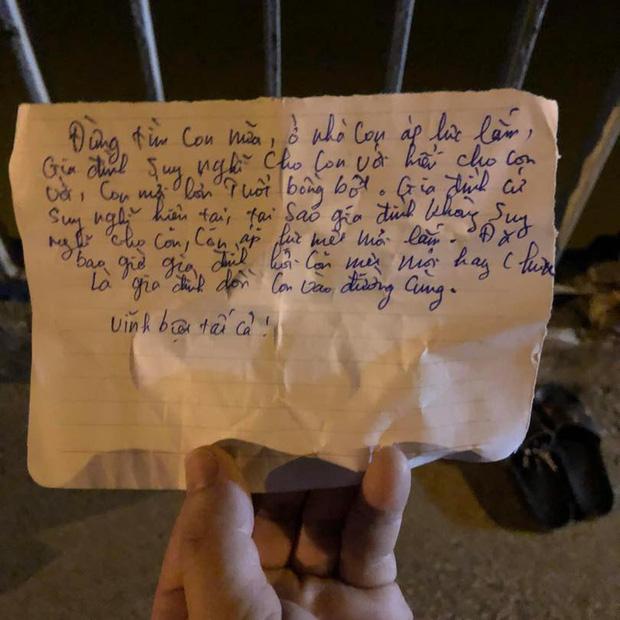 Đừng tìm con nữa, ở nhà con áp lực lắm,
Gia đình suy nghĩ cho con với hiểu cho con
với, con mới lớn tuổi bồng bột. Gia đình cứ
suy nghĩ hiện tại, tại sao gia đình không suy
nghĩ cho con, con áp lực mệt mỏi lắm. Đã
bao giờ gia đình hỏi con mệt mỏi hay chưa
là gia đình dồn con vào đường cùng.
Vĩnh biệt tất cả!